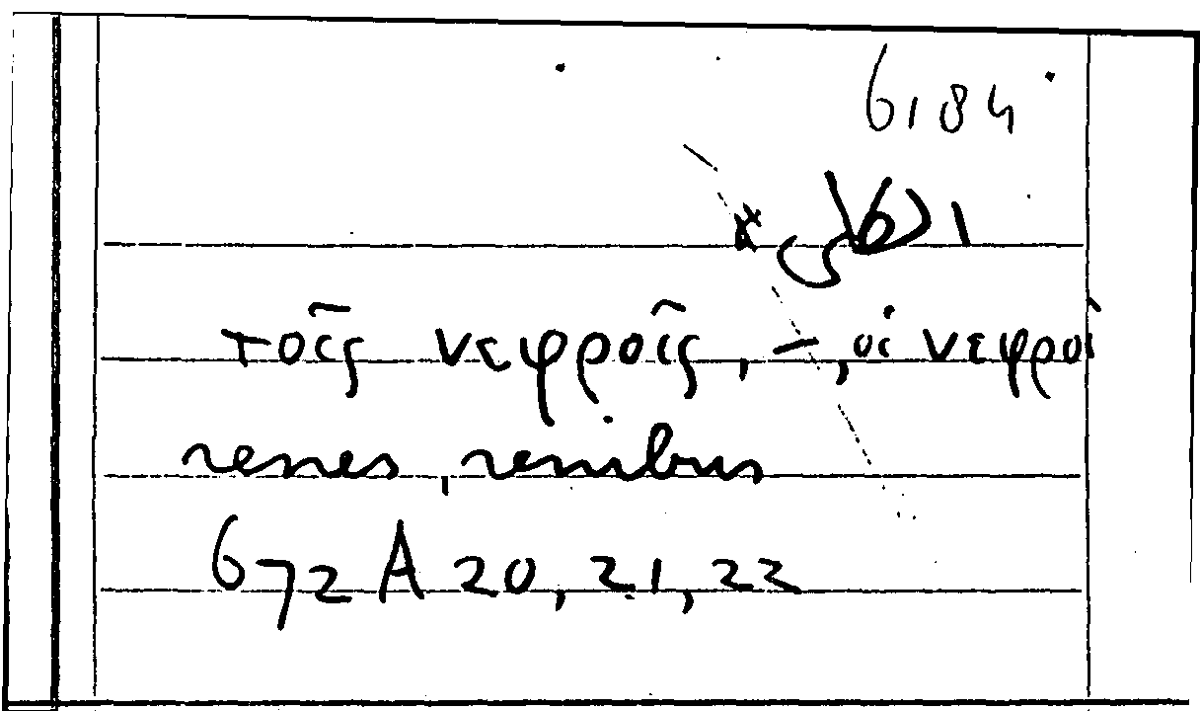 6,84
* الكلى
τοῖς νεφροῖς, –, οἱ νεφροί
renes, renibus
672 A 20, 21, 22